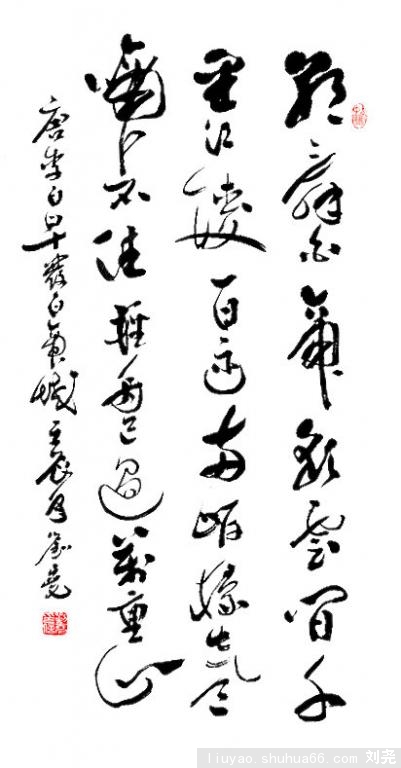 朝辭白帝彩雲間千
里江陵一日還兩岸猿聲
啼不住輕舟已過萬重山
唐李白早發白帝城壬辰月劉堯
liuyao.shuhua66.com 刘尧